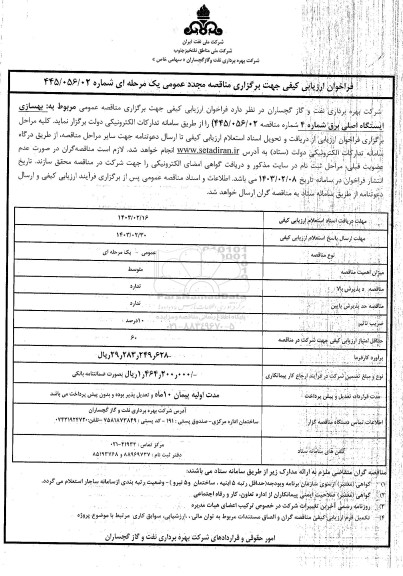 شرکت ملی نفت ایران
شرکت ملی مناطق نفتخیز جنوب
شرکت بهره برداری نفت و گاز گچساران « سهامی خاص »
فراخوان ارزیابی کیفی جهت برگزاری مناقصه مجدد عمومی یک مرحله ای شماره ۴۴۵/۰۵۶/۰۲
شرکت بهره برداری نفت و گاز گچساران در نظر دارد فراخوان ارزیابی کیفی جهت برگزاری مناقصه عمومی مربوط به: بهسازی
ایستگاه اصلی برق شماره ۲ شماره مناقصه ۴۴۵/۰۵۶/۰۲) را از طریق سامانه تدارکات الکترونیکی دولت برگزار نماید. کلیه مراحل
برگزاری فراخوان ارزیابی از دریافت و تحویل اسناد استعلام ارزیابی کیفی تا ارسال دعوتنامه جهت سایر مراحل مناقصه، از طریق درگاه
سامانه تدارکات الکترونیکی دولت (ستاد) به آدرس www.setadiran.ir انجام خواهد شد. لازم است مناقصه گران در صورت عدم
عضویت قبلی، مراحل ثبت نام در سایت مذکور و دریافت گواهی امضای الکترونیکی را جهت شرکت در مناقصه محقق سازند. تاریخ
انتشار فراخوان در سامانه تاریخ ۱۴۰۳/۰۲/۰۸ می باشد. اطلاعات و اسناد مناقصه عمومی پس از برگزاری فرآیند ارزیابی کیفی و ارسال
دعوتنامه از طریق سامانه ستاد به مناقصه گران ارسال خواهد شد.
مهلت دریافت اسناد استعلام ارزیابی کیفی ۱۴۰۳/۰۲/۱۶
مهلت ارسال پاسخ استعلام ارزیابی کیفی ۱۴۰۳/۰۲/۳۰
نوع مناقصه عمومی - یک مرحله ای
میزان اهمیت مناقصه متوسط
مناقصه درپذیرش بالا ندارد
مناقصه حد پذیرش پایین ندارد
ضریب تاثیر ۱۰درصد
حداقل امتیاز ارزیابی کیفی جهت شرکت در مناقصه ۶۰
برآورد کارفرما ۲۹ر۲۸۳ر۲۴۹ر۶۲۸-ریال
نوع و مبلغ تضمین شرکت در فرآیند ارجاع کار پیمانکاری ۱ر۴۶۴ر۲۰۰ر۰۰۰-ریال بصورت ضمانتنامه بانکی
مدت قرارداد، تعدیل و پیش پرداخت مدت اولیه پیمان ۱۰ماه و تعدیل پذیر بوده و بدون پیش پرداخت می باشد
اطلاعات تماس دستگاه مناقصه گزار آدرس شرکت بهره برداری نفت و گاز گچساران
ساختمان اداره مرکزی- صندوق پستی : ۱۹۱ - کد پستی
تلفن های سامانه ستاد مرکز تماس : ۴۱۹۳۴-۰۲۱
دفتر ثبت نام : ۸۸۹۶۹۷۳۷ و ۸۵۱۹۳۷۶۸
مناقصه گران متقاضی ملزم به ارائه مدارک زیر از طریق سامانه ستاد می باشند:
۱) گواهی (معتبر) ازسوی سازمان برنامه وبودجه(حداقل رتبه ۵ ابنیه ، ساختمان و۵ نیرو) - وضعیت رتبه بندی ازسامانه ساجار استعلام می گردد.
۲) گواهی (معتبر) صلاحیت ایمنی پیمانکاران از اداره تعاون، کار و رفاه اجتماعی
۳) روزنامه رسمی آخرین تغییرات شرکت در خصوص ترکیب اعضای هیات مدیره
۴) تکمیل فرم ارزیابی کیفی مناقصه گران و الصاق مستندات مربوط به توان مالی ، ارزشیابی، سوابق کاری مرتبط با موضوع پروژه
امور حقوقی و قراردادهای شرکت بهره برداری نفت و گاز گچساران